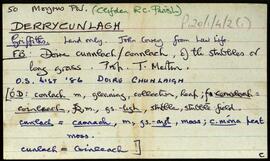 50 Moyrus Pn. (Clifden R.C. Parish) P120/1/2(1)
DERRYCUNLAGH
Griffiths. Land only. John Carey from Law Life.
Doire cunlach / connlach, of the stubbles or
long grass Prof. T.
O.S. LIST '86 DOIRE CHUNLAIGH
O.D: conlach m, gleaning, collection, leaf,
coinleach, m, gs. -ligh, stubble, stubble field.
cunlach = caonach, m, gs. -aigh, moss; c. móna peat
moss.
cunlach = coinleach]